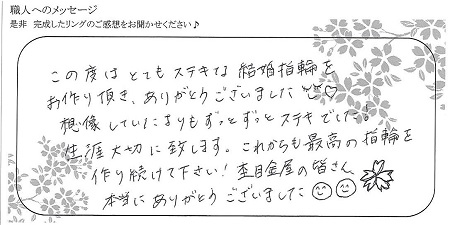 職人へのメッセージ
是非 完成したリングのご感想をお聞かせください♪
この度は とても ステキな 結婚指輪を
お作り頂き、ありがとうございました♡
想像していたよりも ずっと ずっと ステキでした!
生涯大切に致します。これからも最高の指輪を
作り続けて下さい! 杢目金屋の皆さん
本当に ありがとう ございました